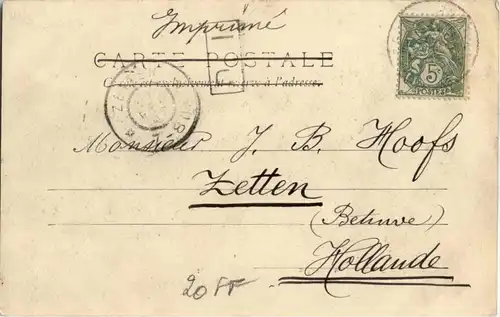 Imprimé
CARTE POSTALE
Ce côté est exclusivement réservé à l'adresse
5
POSTES
Monsieur J. B. Hoofs
Zetten
(Betuwe)
Hollande
20 FF